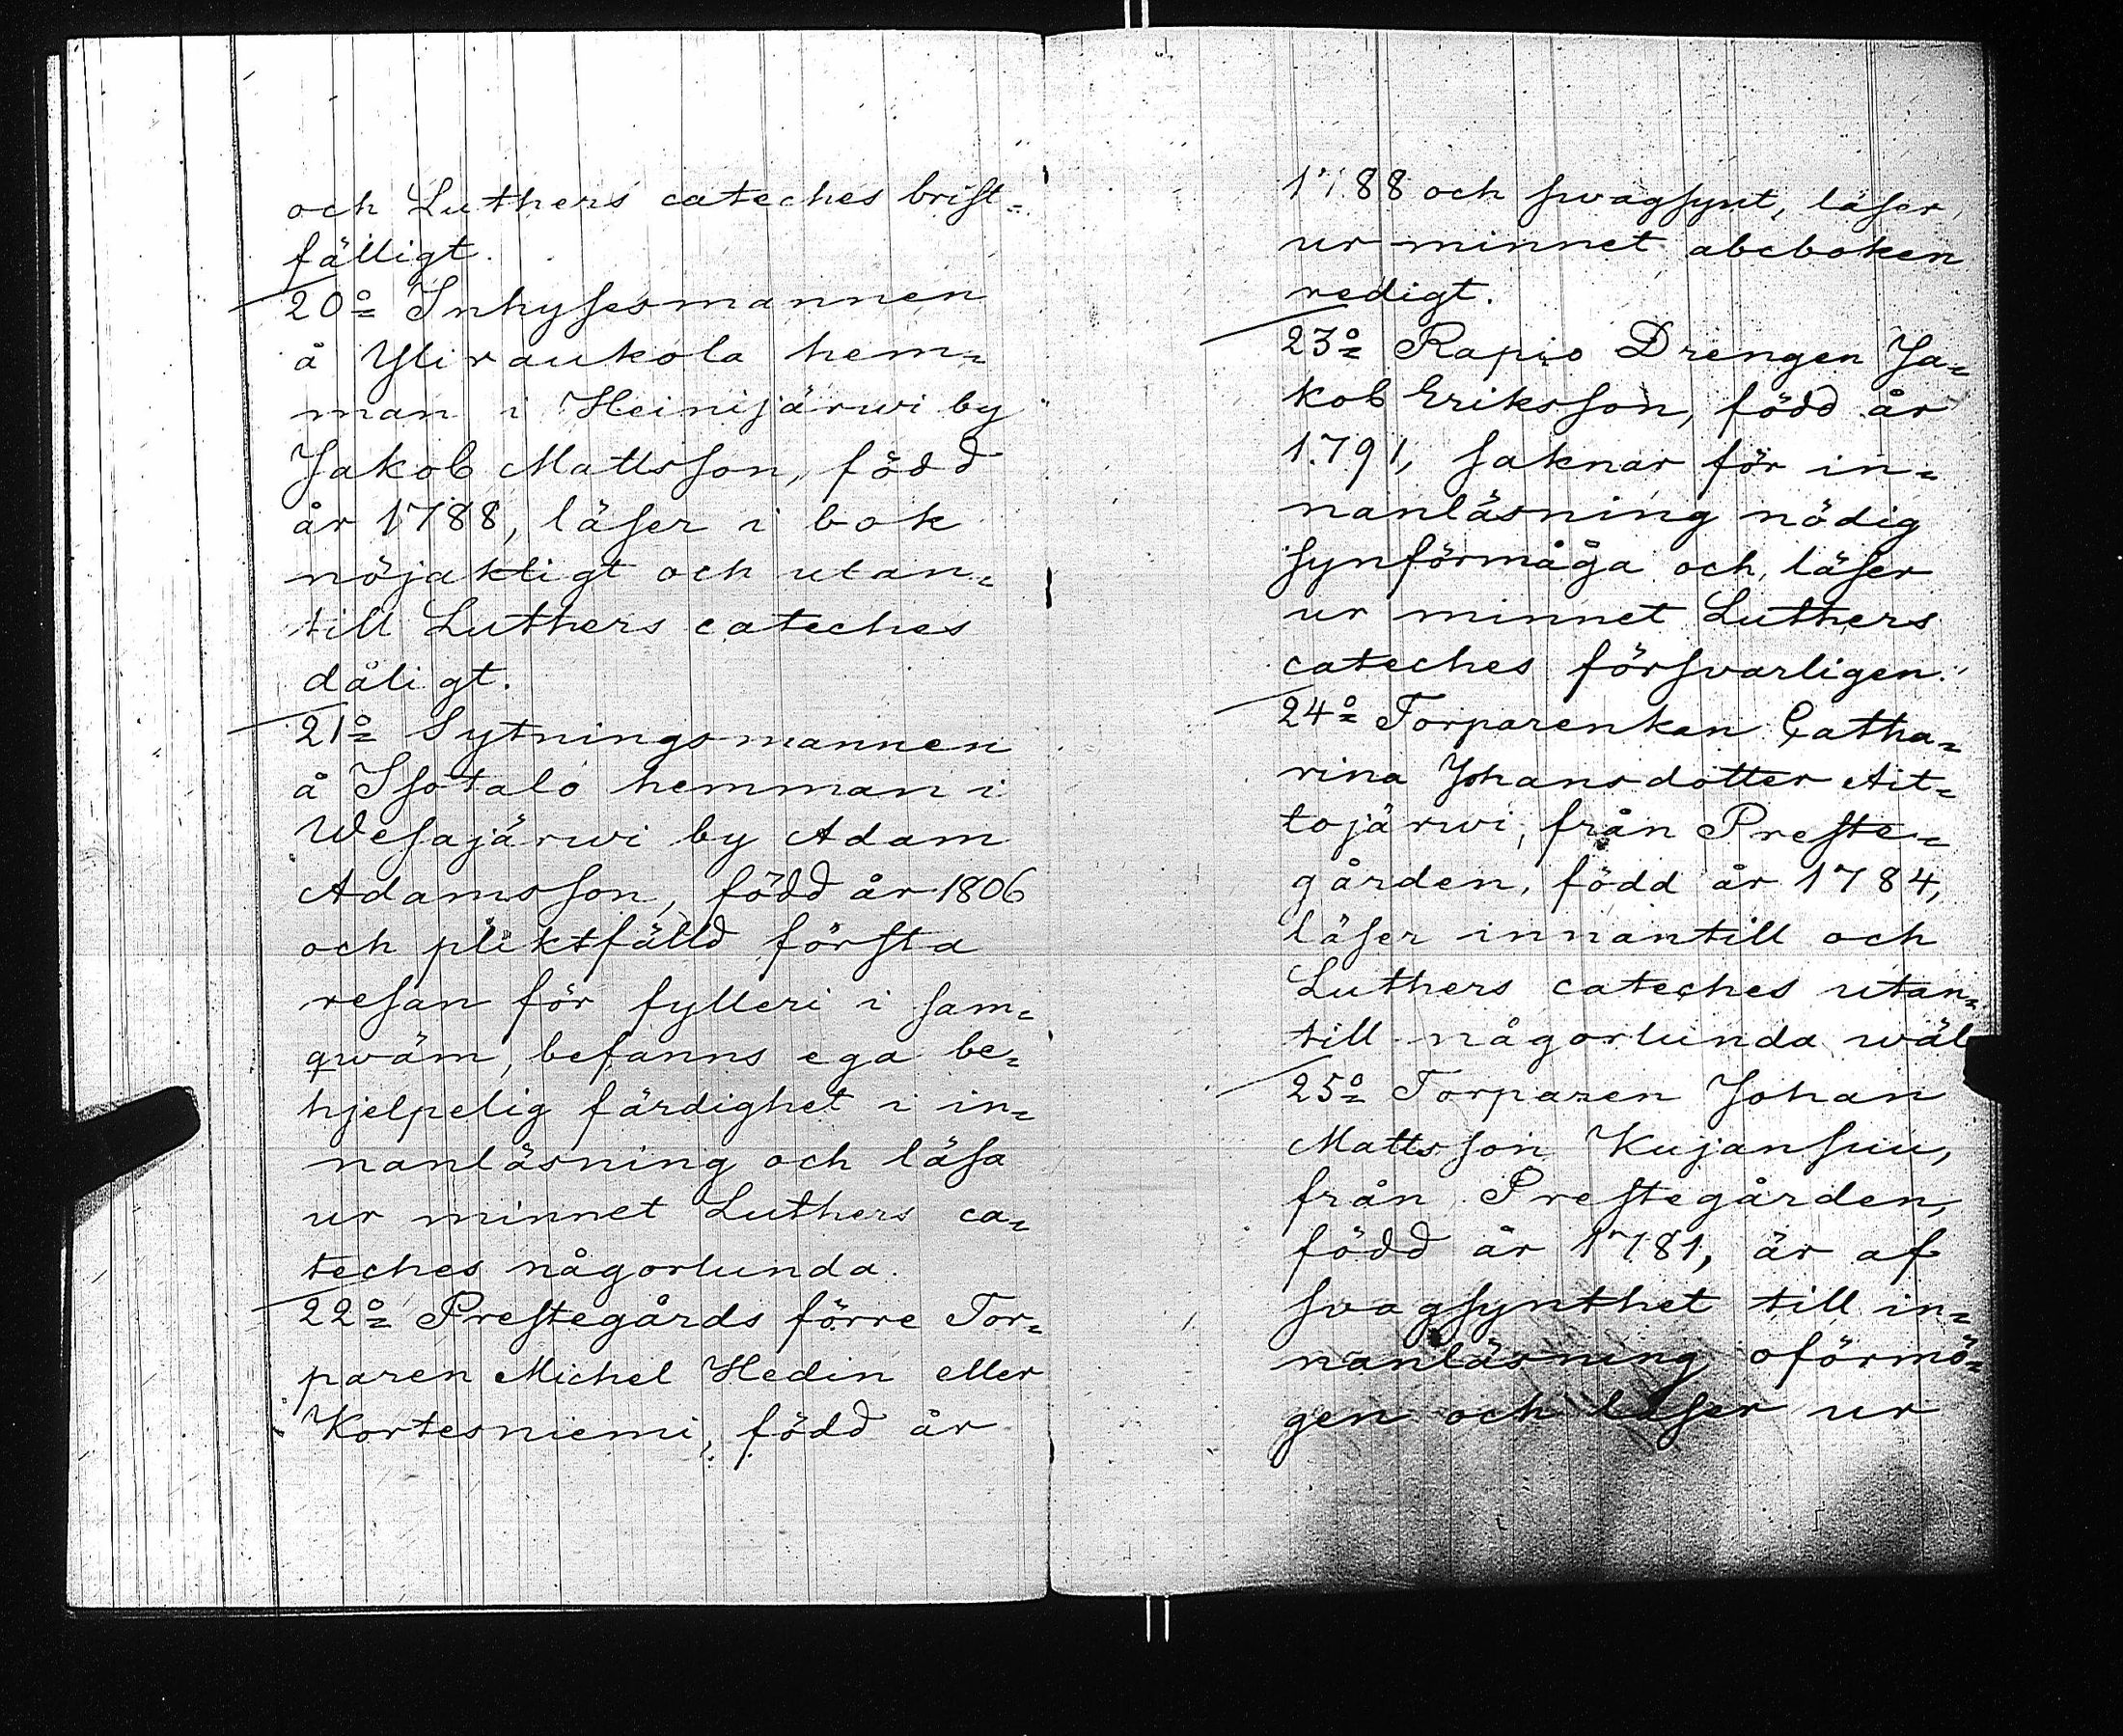 och Luthers cateches brist=
fälligt.
20:o Inhysesmannen
å Yliraukola hem=
man i Heinijärwi by
Jakob Mattsson, född
år 1788, läser i bok
nöjaktigt och utan=
till Luthers cateches
dåligt.
21:o Sytningsmannen
å Isotalo hemman i
Wesajärwi by Adam
Adamsson, född år 1806
och pliktfälld första
resan för fylleri i sam=
qwäm, befanns ega be=
hjelpelig färdighet i in=
nanläsning och läsa
ur minnet Luthers ca=
teches någorlunda.
22:o Prestegårds förre Tor=
paren Michel Hedin eller
Kortesniemi, född år
1788 och swagsynt, läser
ur minnet abcboken
redigt.
23:o Rapio Drengen Ja=
kob Eriksson, född år
1791, saknar för in=
nanläsning nödig
synförmåga och läser
ur minnet Luthers
cateches försvarligen.
24:o Torparenkan Catha=
rina Johansdotter Ait=
tojärwi, från Preste=
gården, född år 1784,
läser innantill och
Luthers cateches utan=
till någorlunda wäl
25:o Torparen Johan
Mattsson Kujansuu,
från Prestegården,
född år 1781, är af
svagsynthet till in=
nanläsning oförmö=
gen och läser ur